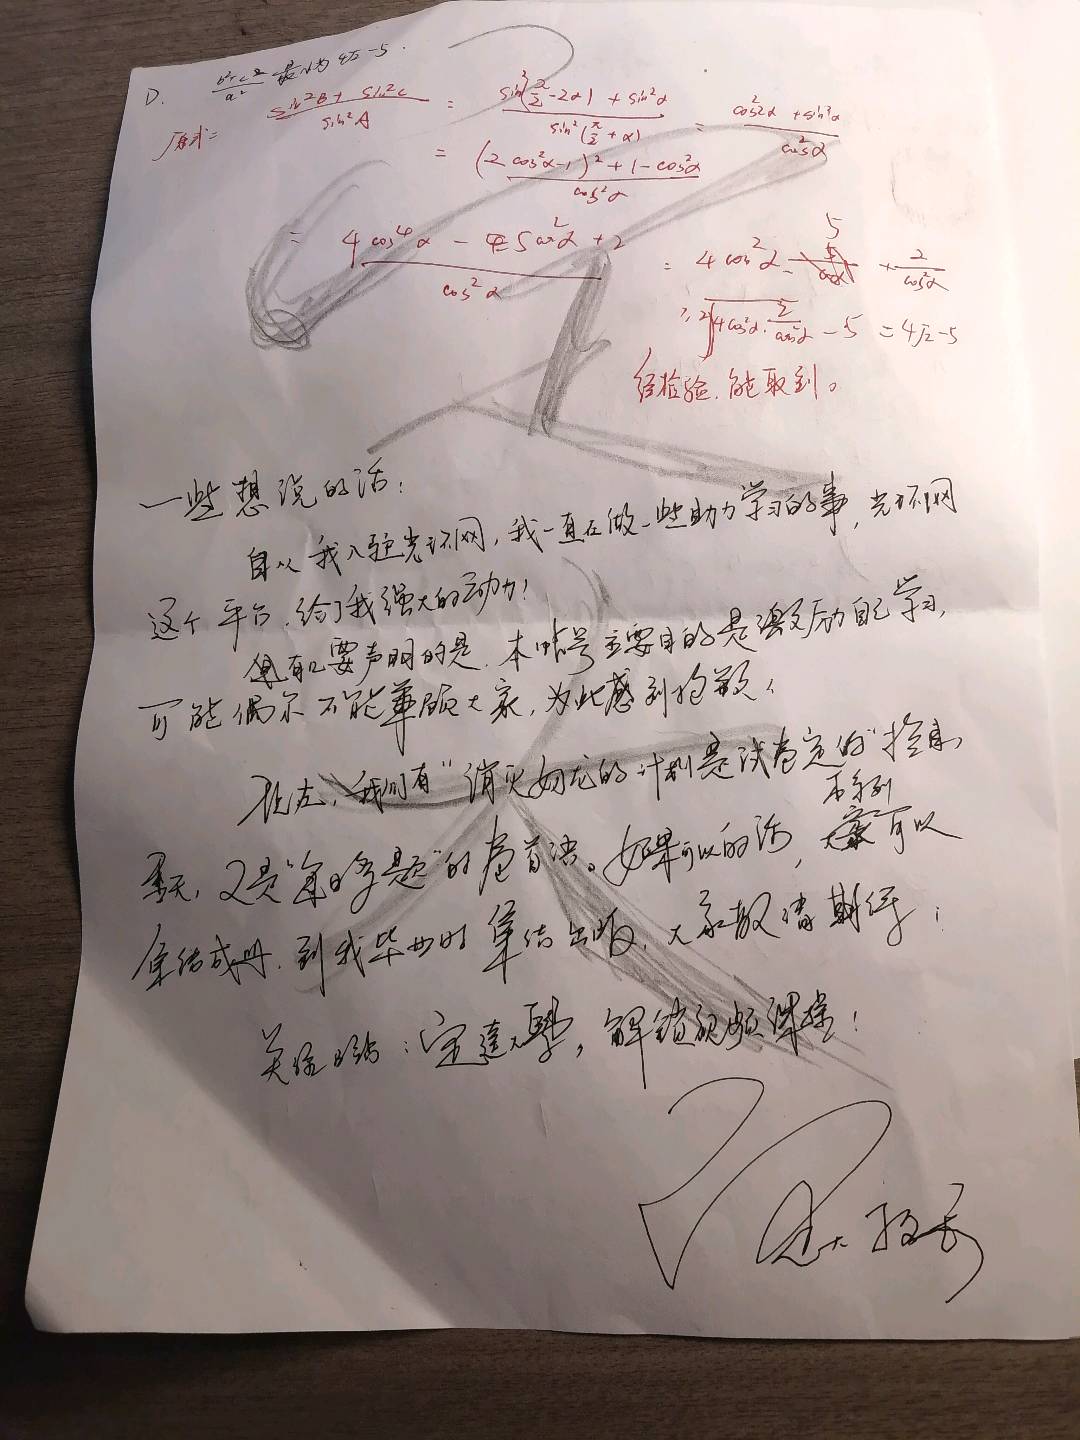 D. (b²+c²)/a² 最小为 4√2-5.
原式= (sin²B+sin²C)/sin²A = (sin²(π/2-2α)+sin²α)/sin²(π/2+α) = (cos²2α+sin²α)/cos²α
= ((2cos²α-1)²+1-cos²α)/cos²α
= (4cos⁴α-5cos²α+2)/cos²α = 4cos²α-5+2/cos²α
≥2√(4cos²α·2/cos²α)-5 =4√2-5
经检验,能取到。
一些想说的话:
自从我入驻光环网,我一直在做一些助力学习的事,光环网
这个平台,给了我强大的动力!
但有必要声明的是,本帖号主要目的是激励自己学习,
可能偶尔不能兼顾大家,为此感到抱歉!
现在,我们有"消灭幼龙的计划是试卷定的"
又是"每日多题"的卷首语。如果可以的话,本系列可以
集结成册,到我毕业时集结出版,大家敬请期待!
关注 : 定远大學,解锁视频课堂!
校长